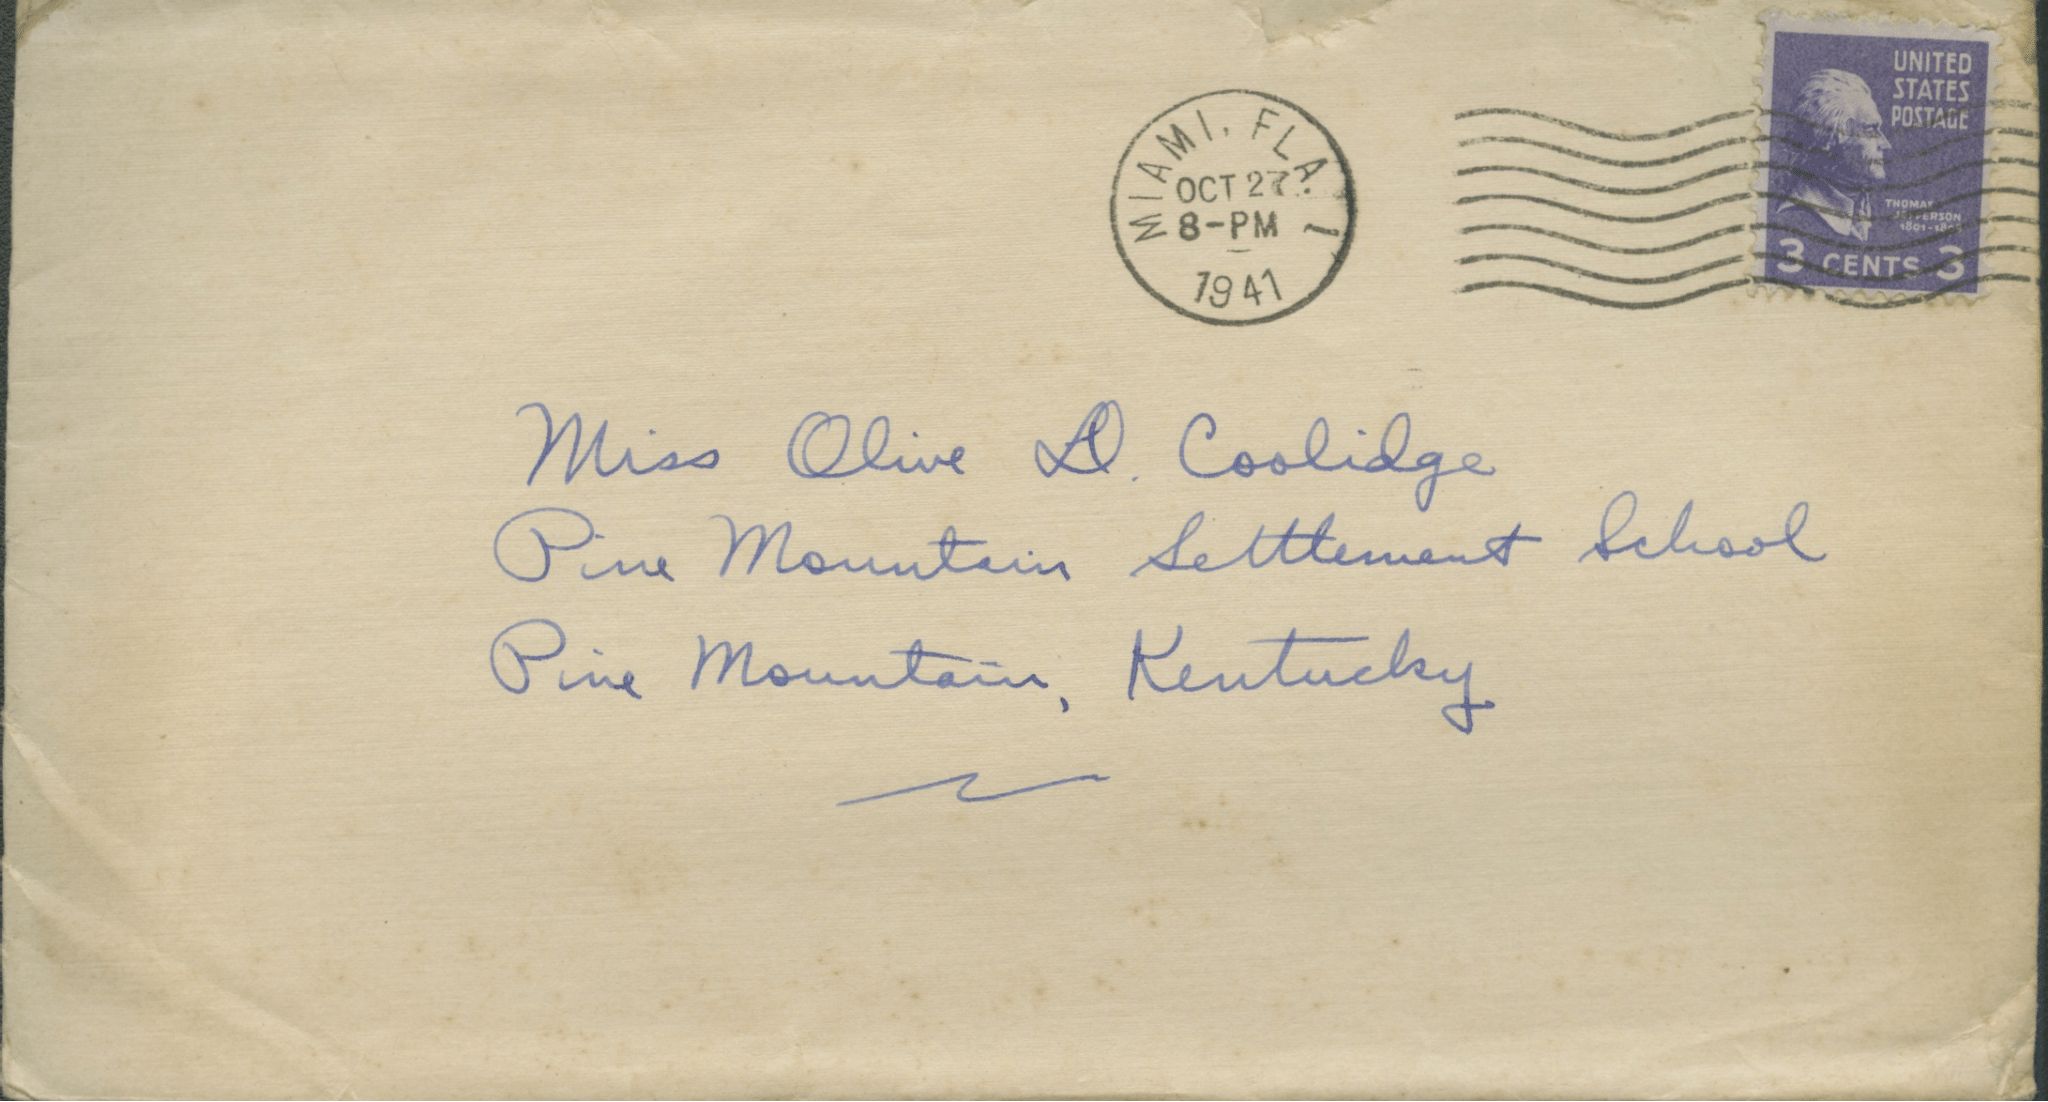 UNITED
STATES
POSTAGE
THOMAS
JEFFERSON
1801-1809
3 CENTS 3
MIAMI, FLA. 1
OCT 27
8-PM
1941
Miss Olive D. Coolidge
Pine Mountain Settlement School
Pine Mountain, Kentucky